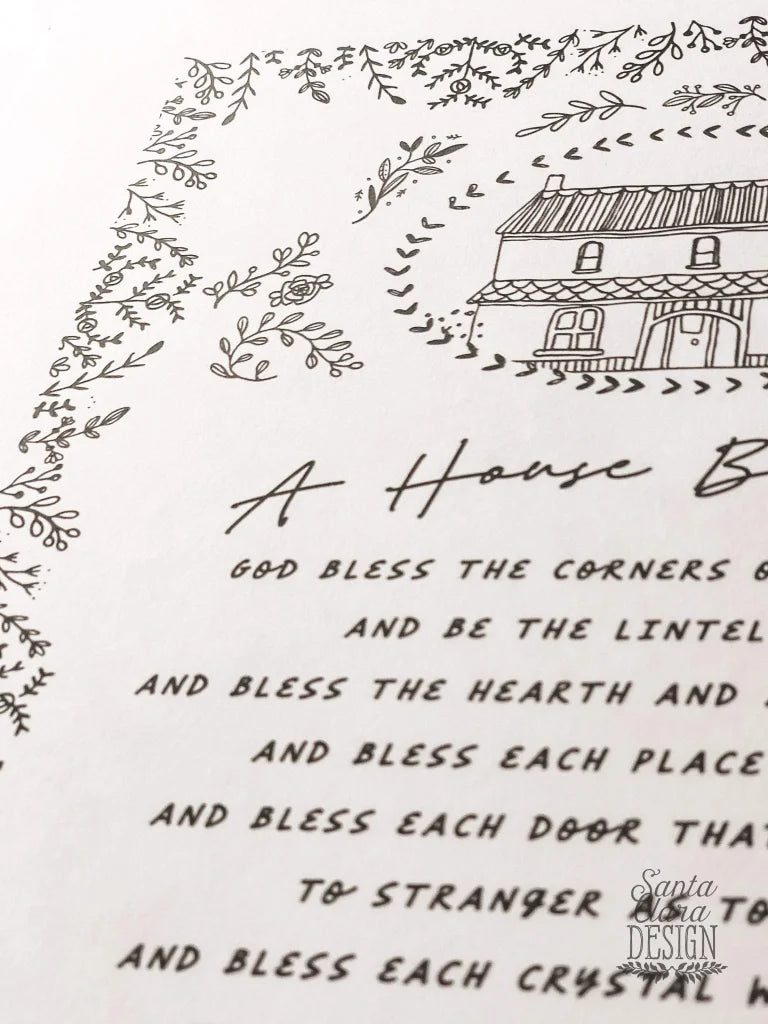 A House
GOD BLESS THE CORNERS
AND BE THE LINTEL
AND BLESS THE HEARTH AND
AND BLESS EACH PLACE
AND BLESS EACH DOOR THAT
TO STRANGER AS TO
AND BLESS EACH CRYSTAL
Santa
Clara
DESIGN